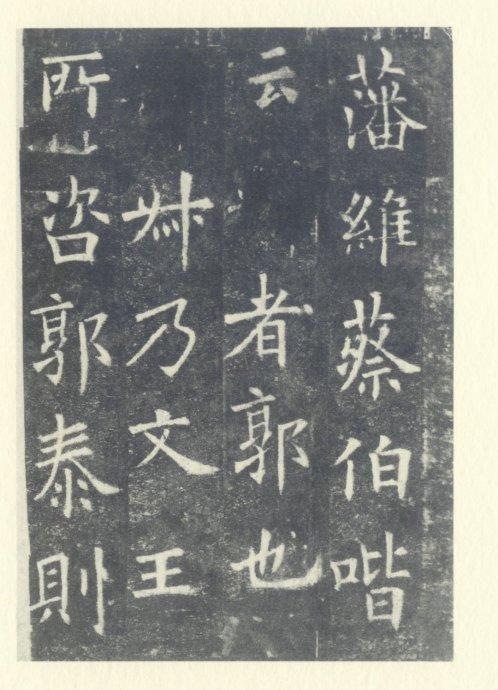 藩維蔡伯喈
云者郭也
𠦑乃文王
所咨郭泰則